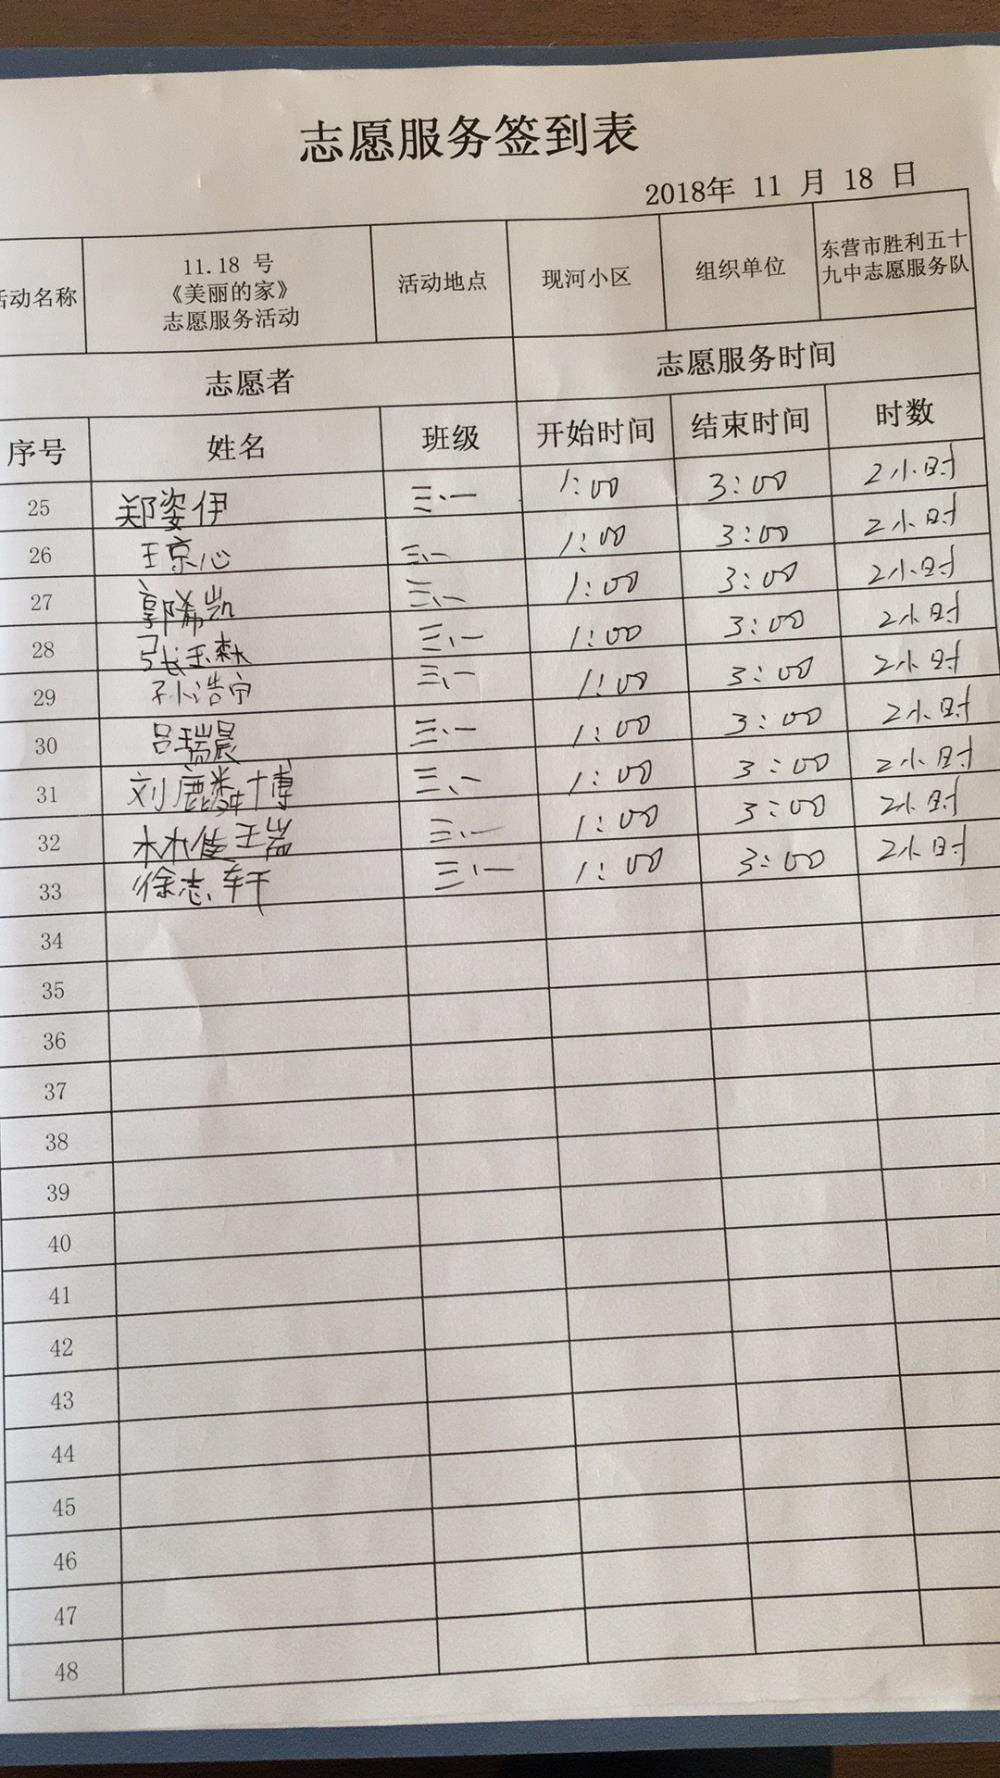 志愿服务签到表
2018年 11 月 18 日
活动名称 11.18 号《美丽的家》志愿服务活动 活动地点 现河小区 组织单位 东营市胜利五十九中志愿服务队
志愿者 志愿服务时间
序号 姓名 班级 开始时间 结束时间 时数
25 郑姿伊 三、一 1:00 3:00 2小时
26 王京心 三、一 1:00 3:00 2小时
27 郭晞凯 三、一 1:00 3:00 2小时
28 张玉森 三、一 1:00 3:00 2小时
29 孙浩宁 三、一 1:00 3:00 2小时
30 吕瑞晨 三、一 1:00 3:00 2小时
31 刘麟博 三、一 1:00 3:00 2小时
32 林佳 三、一 1:00 3:00 2小时
33 徐志轩 三、一 1:00 3:00 2小时
34
35
36
37
38
39
40
41
42
43
44
45
46
47
48